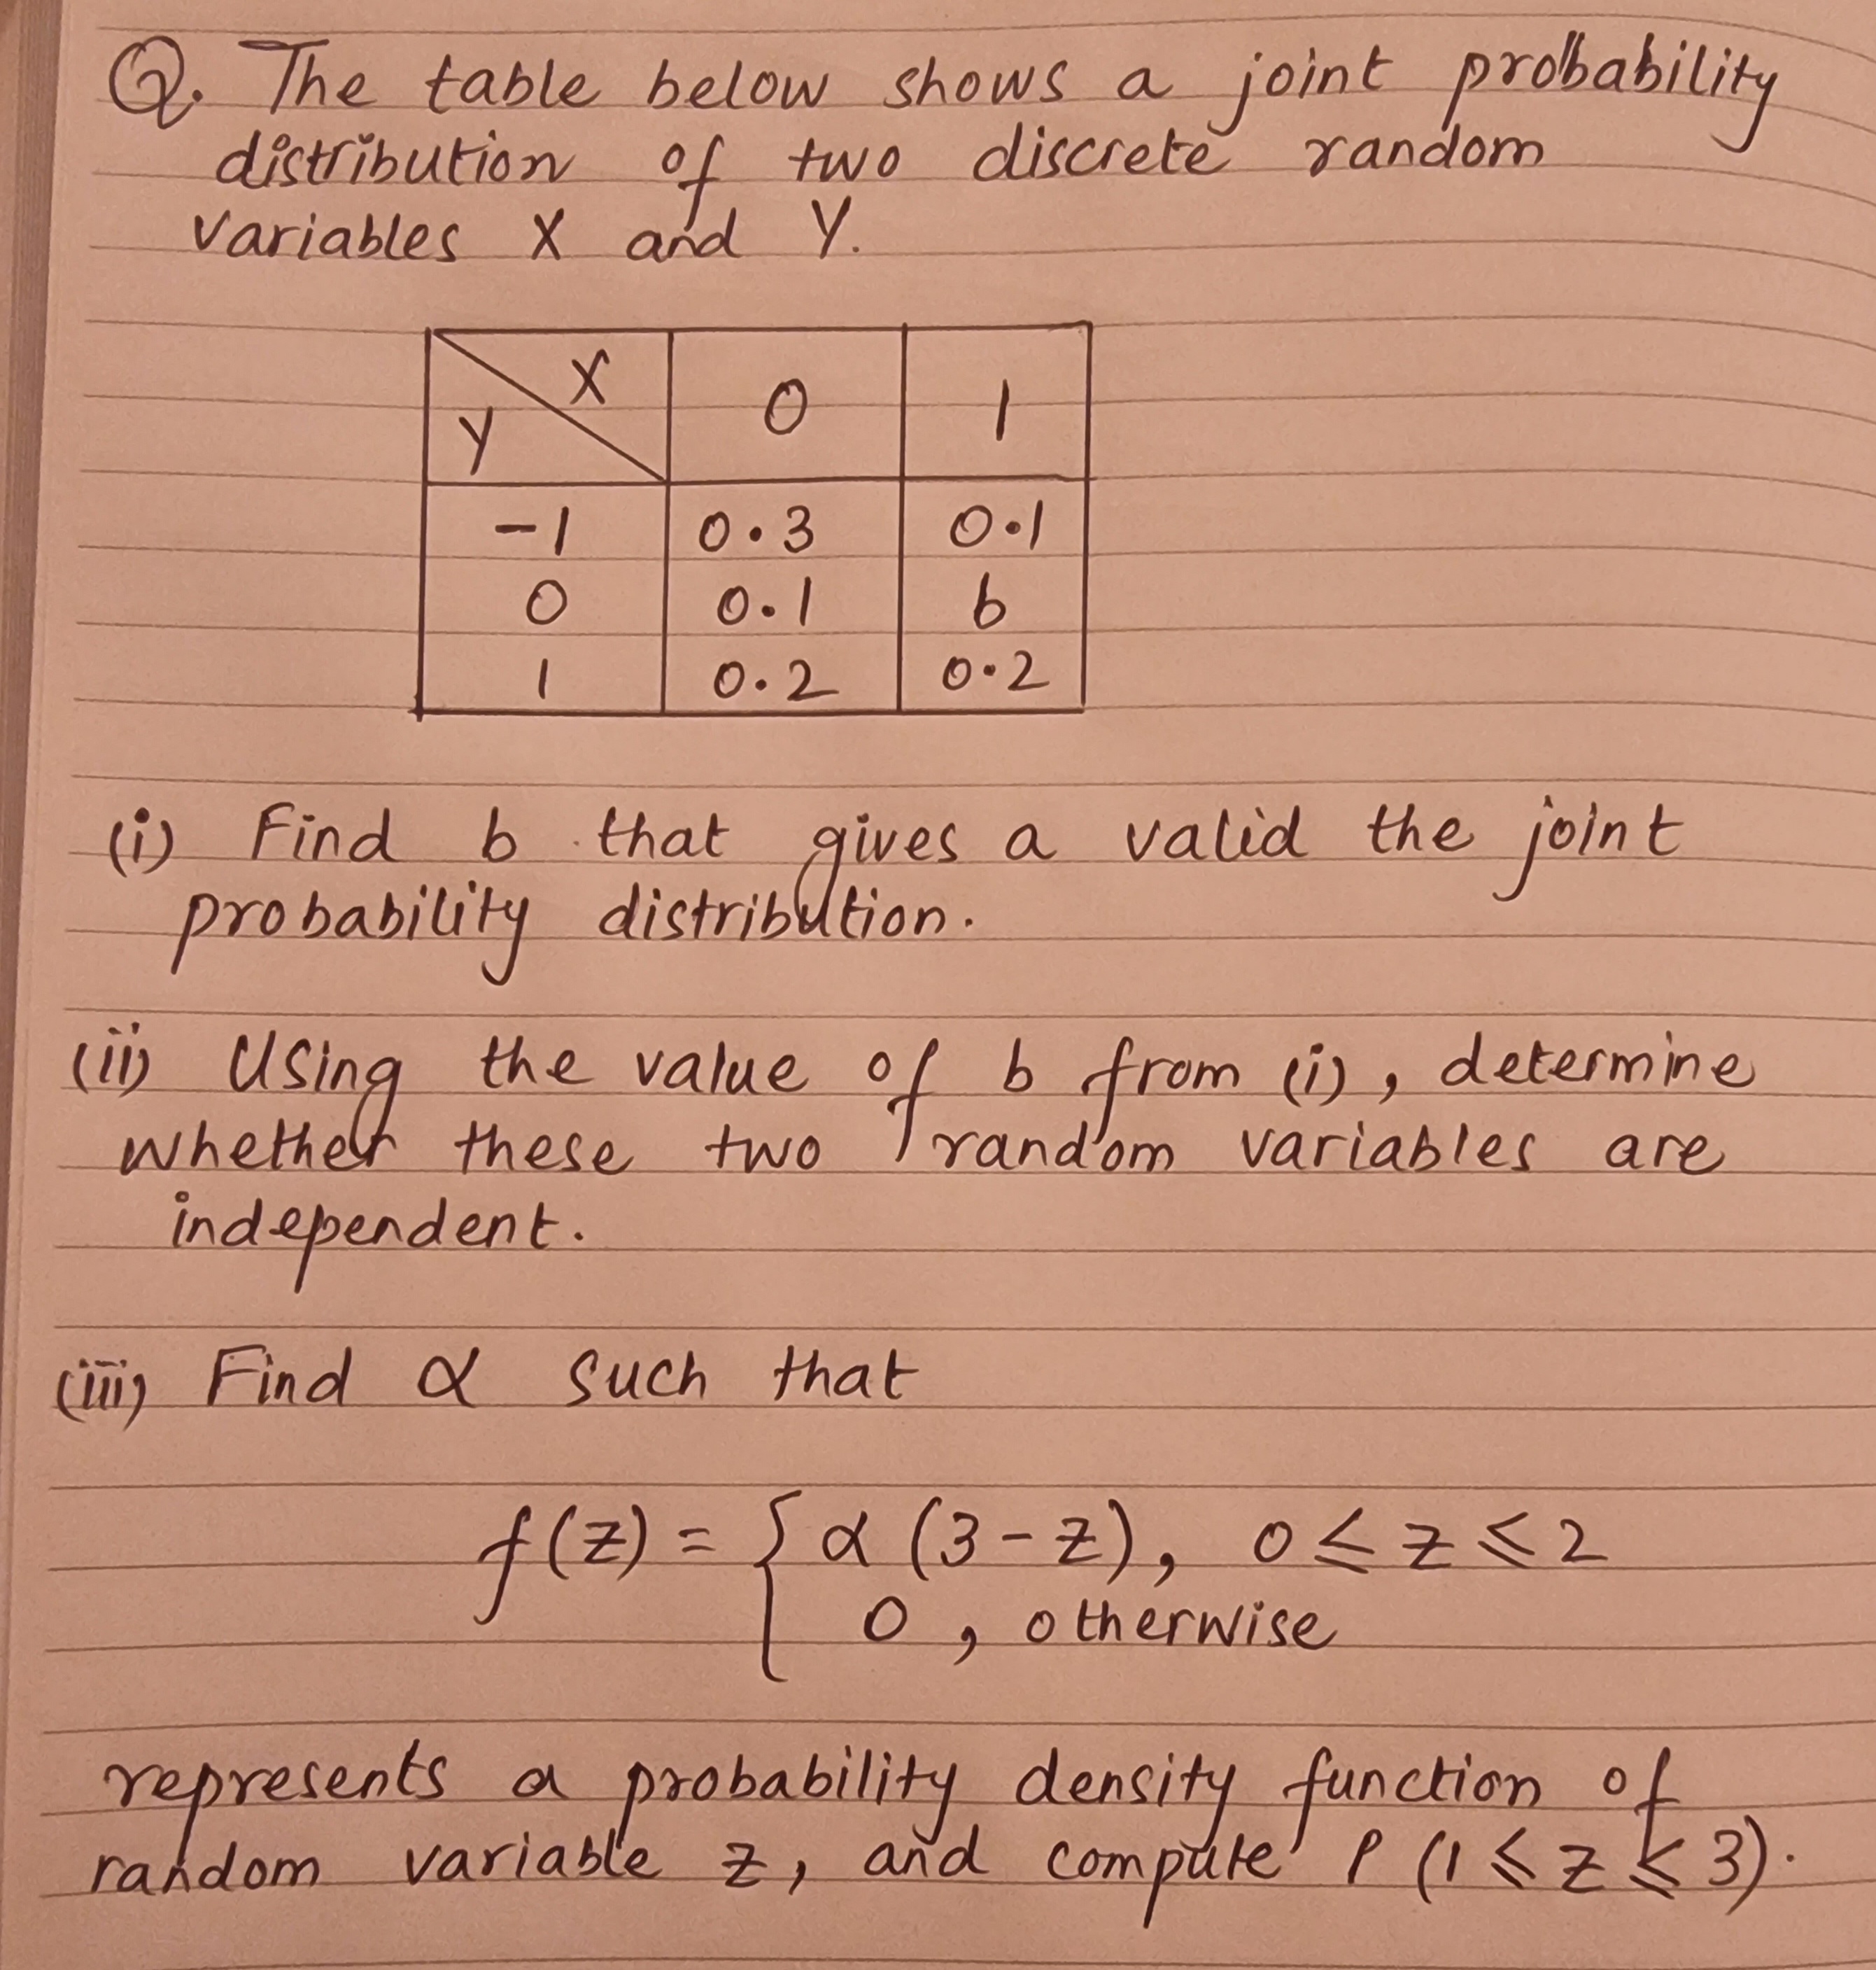 Q. The table below shows a joint probability
distribution of two discrete random
variables X and Y.
X
Y
0 1
-1 0.3 0.1
0 0.1 b
1 0.2 0.2
(i) Find b that gives a valid the joint
probability distribution.
(ii) Using the value of b from (i), determine
whether these two random variables are
independent.
(iii) Find α such that
f(z) = { α (3 - z), 0 ≤ z ≤ 2
0 , otherwise
represents a probability density function of
random variable z, and compute P (1 ≤ z ≤ 3).